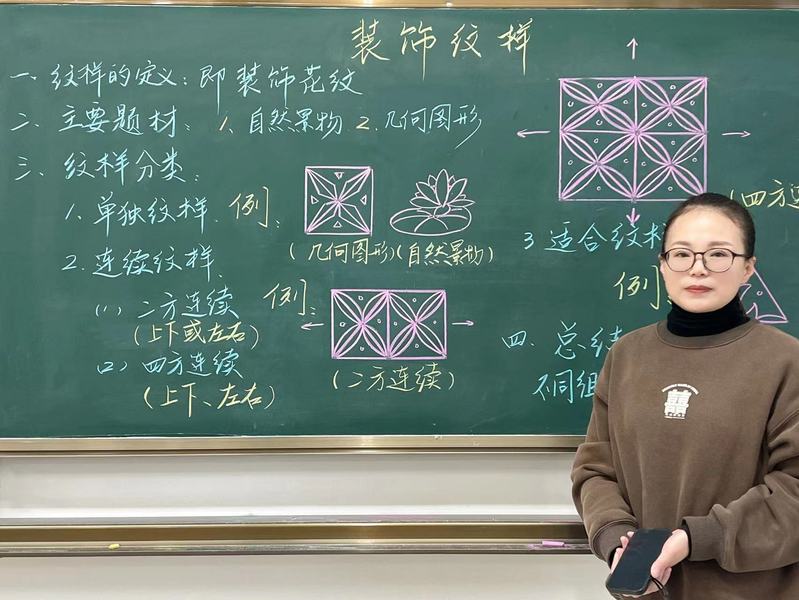 装饰纹样
一、纹样的定义：即装饰花纹
二、主要题材：1、自然景物 2.几何图形
三、纹样分类：
1、单独纹样. 例：
(几何图形)(自然景物)
2.连续纹样.
(1)二方连续 例：
(上下或左右)
(二方连续)
(2)四方连续
(上下、左右)
(四方
3.适合纹
例
四、总结
不同组